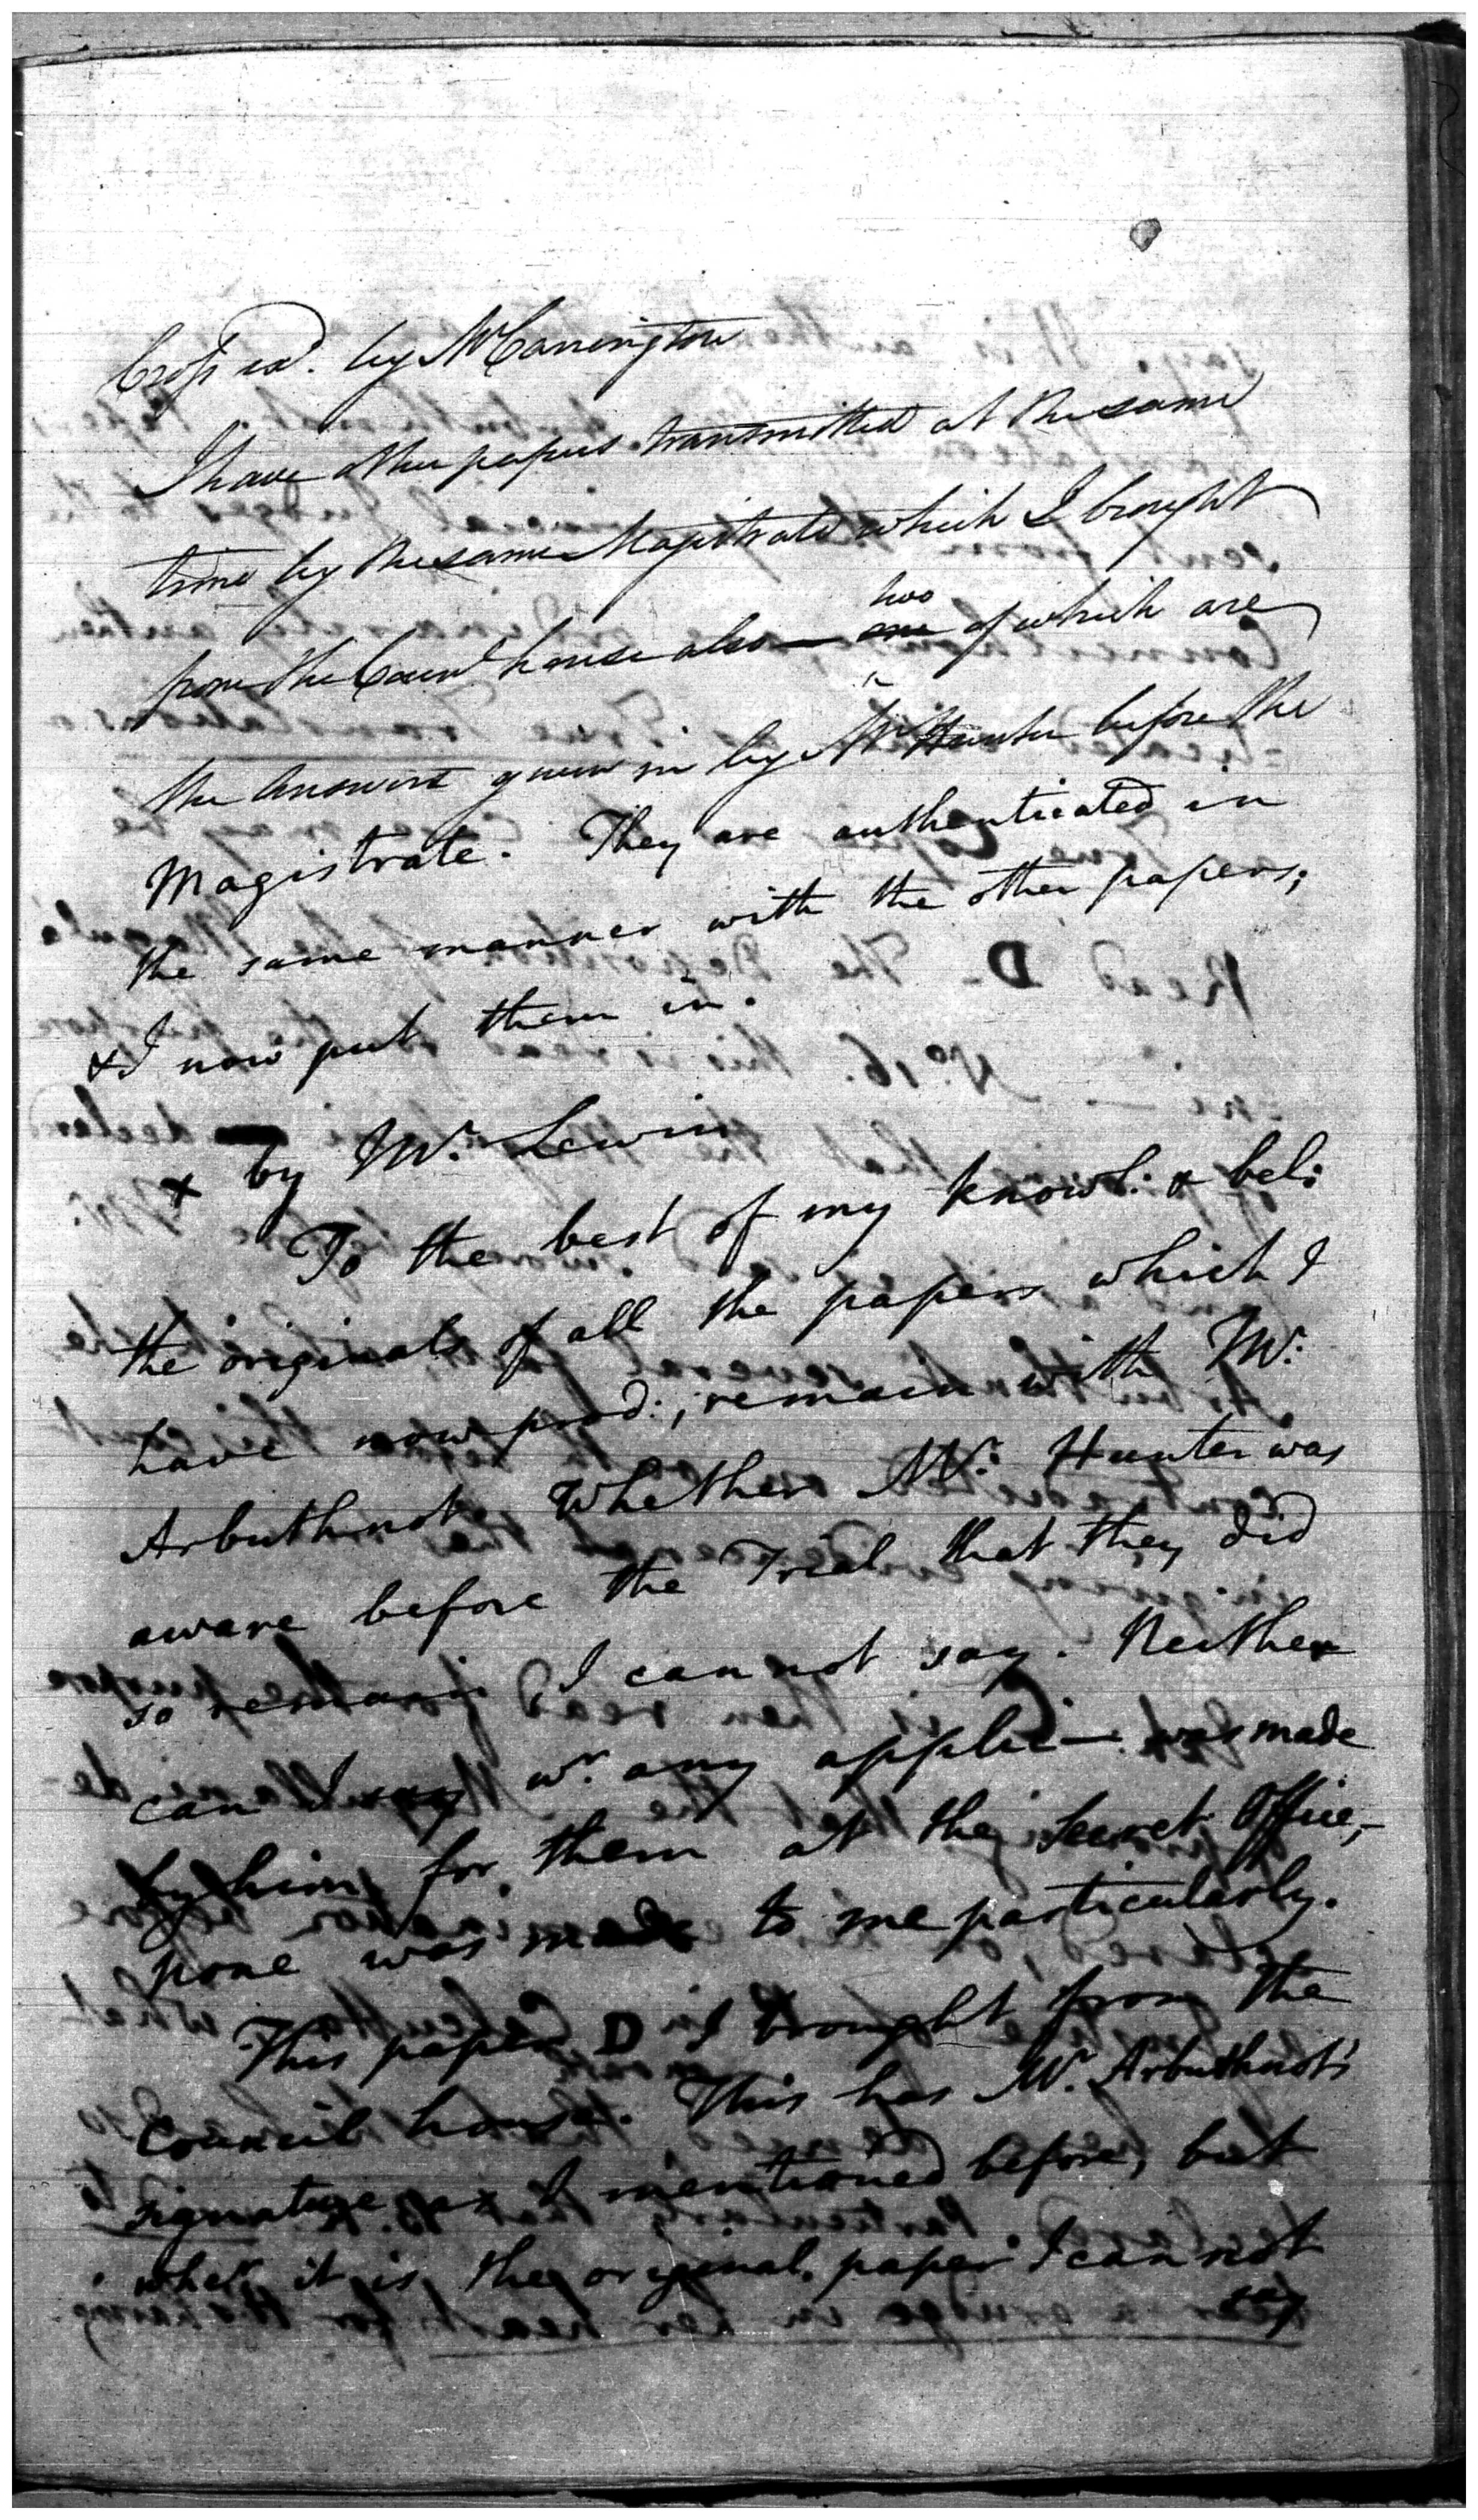 Cross exd. by Mr Carrington
I have other papers transmitted at the same
time by the same Magistrate which I brought
from the Counl house also — two one of which are
the Answers given in by Mr Hunter before the
Magistrate. They are authenticated in
the same manner with the other papers;
& I now put them in.
x by Mr. Lewin
To the best of my knowl: & bel:
the originals of all the papers which I
have now prod:, remain with Mr.
Arbuthnot. Whether Mr. Hunter was
aware before the Trial that they did
so remain, I cannot say. Neither
can I say wr. any applic— was made
by him for them at the Secret Office,—
none was made to me particularly.
This paper D I brought from the
Council house. This has Mr. Arbuthnot's
signature as I mentioned before, but
whetr. it is the original paper I can not
say